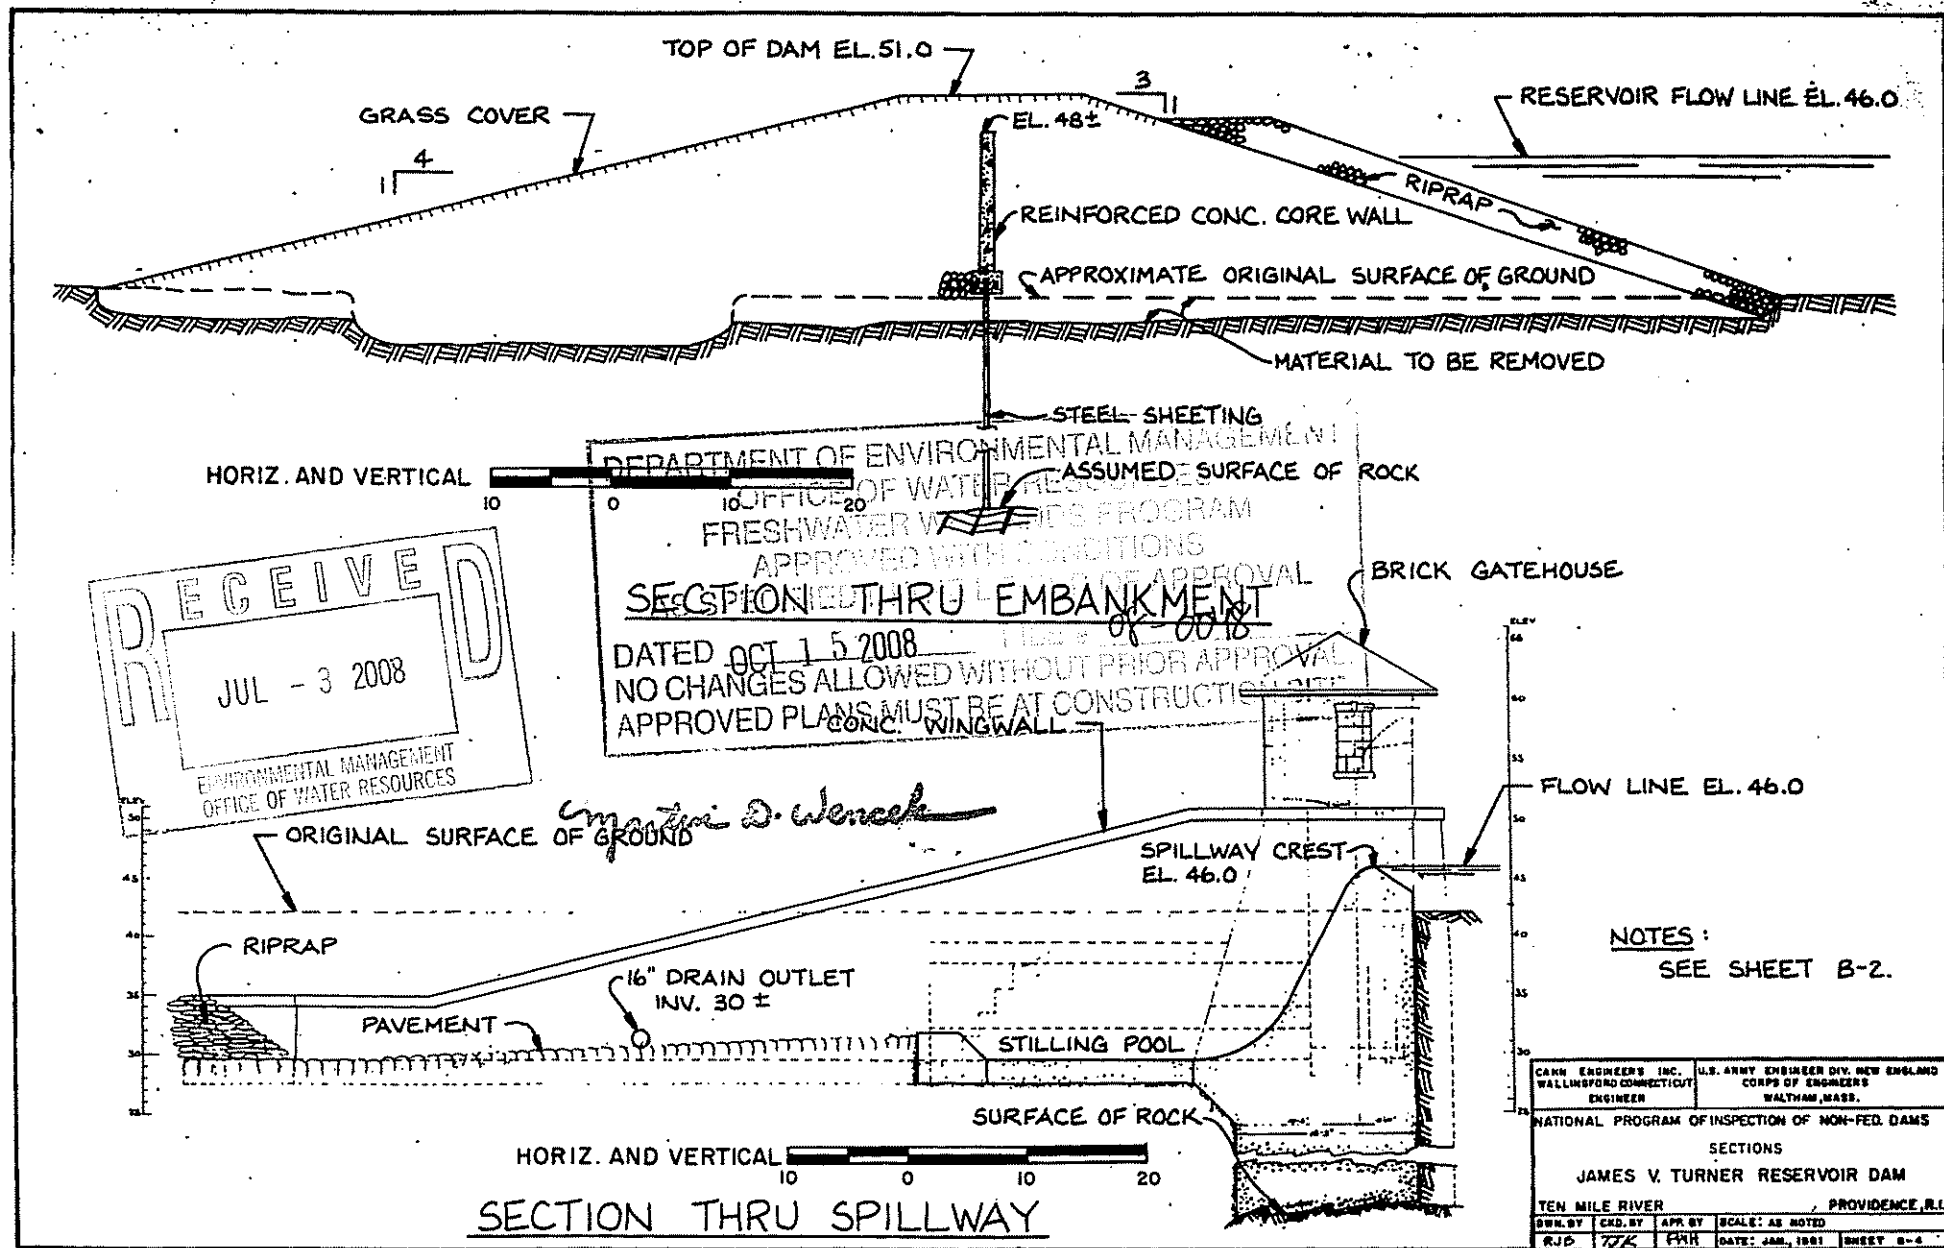 TOP OF DAM EL.51.0
3
1
RESERVOIR FLOW LINE EL.46.0
GRASS COVER
EL.48±
4
1
RIPRAP
REINFORCED CONC. CORE WALL
APPROXIMATE ORIGINAL SURFACE OF GROUND
MATERIAL TO BE REMOVED
STEEL SHEETING
ASSUMED SURFACE OF ROCK
HORIZ. AND VERTICAL
10 0 10 20
SECTION THRU EMBANKMENT
DEPARTMENT OF ENVIRONMENTAL MANAGEMENT
OFFICE OF WATER RESOURCES
FRESHWATER WETLANDS PROGRAM
APPROVED WITH CONDITIONS
OF APPROVAL
08-0018
DATED OCT 15 2008
NO CHANGES ALLOWED WITHOUT PRIOR APPROVAL.
APPROVED PLANS MUST BE AT CONSTRUCTION SITE
RECEIVED
JUL - 3 2008
ENVIRONMENTAL MANAGEMENT
OFFICE OF WATER RESOURCES
Martin D. Wencek
BRICK GATEHOUSE
CONC. WINGWALL
FLOW LINE EL.46.0
ORIGINAL SURFACE OF GROUND
SPILLWAY CREST
EL. 46.0
RIPRAP
16" DRAIN OUTLET
INV. 30 ±
PAVEMENT
STILLING POOL
SURFACE OF ROCK
ELEV
50
45
40
35
30
25
ELEV
65
60
55
50
45
40
35
30
25
NOTES:
SEE SHEET B-2.
HORIZ. AND VERTICAL
10 0 10 20
SECTION THRU SPILLWAY
CAHN ENGINEERS INC.
WALLINGFORD CONNECTICUT
ENGINEER
U.S. ARMY ENGINEER DIV. NEW ENGLAND
CORPS OF ENGINEERS
WALTHAM, MASS.
NATIONAL PROGRAM OF INSPECTION OF NON-FED. DAMS
SECTIONS
JAMES V. TURNER RESERVOIR DAM
TEN MILE RIVER , PROVIDENCE, R.I.
DWN. BY CKD. BY APR. BY SCALE: AS NOTED
RJB TJK DATE: JAN., 1981 SHEET B-4